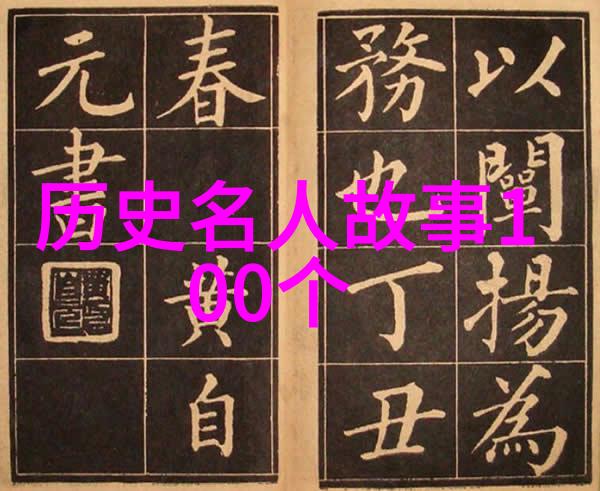 以闡揚為
務也丁丑
春黃自
元書
历史名人故事1
00个